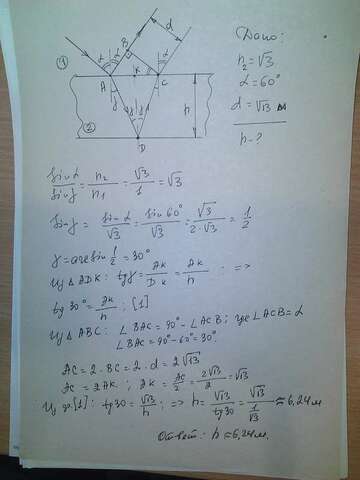 Дано:
n₂ = √3
α = 60°
d = √13 м
h - ?
①
②
α α B d α α
A K C
γ γ γ h
D
sinα/sinγ = n₂/n₁ = √3/1 = √3
sinγ = sinα/√3 = sin60°/√3 = √3/2·√3 = 1/2
γ = arcsin 1/2 = 30°
Из ΔADK: tgγ = AK/DK = AK/h ; =>
tg 30° = AK/h ; [1]
Из ΔABC: ∠BAC = 90° - ∠ACB; где ∠ACB = α
∠BAC = 90° - 60° = 30°
AC = 2·BC = 2·d = 2√13
AC = 2AK ; AK = AC/2 = 2√13/2 = √13
Из ур.[1]: tg30 = √13/h ; => h = √13/tg30 = √13/1/√3 ≈ 6,24 м
Ответ: h ≈ 6,24 м.